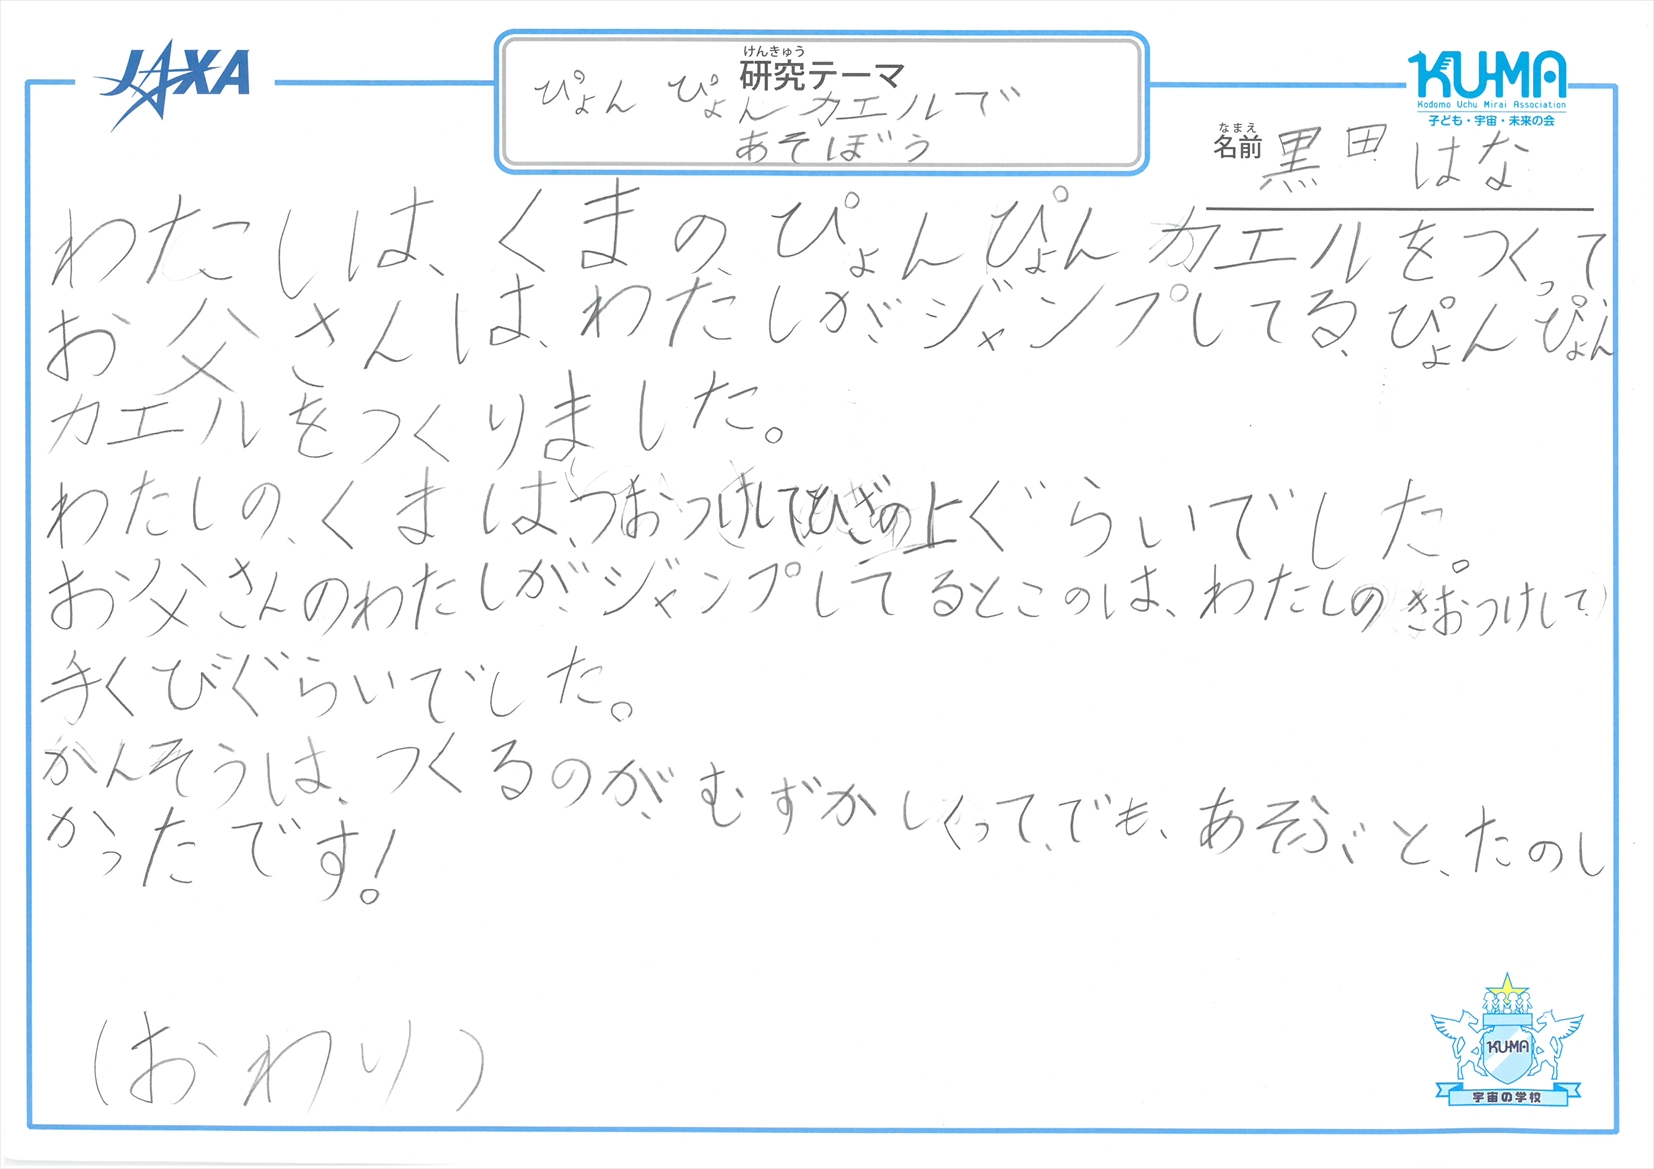 JAXA
けんきゅう
研究テーマ
ぴょん ぴょんカエルで
あそぼう
KU-MA
Kodomo Uchu Mirai Association
子ども・宇宙・未来の会
なまえ
名前 黒田 はな
わたしは、くまの、ぴょんぴょんカエルをつくって、
お父さんは、わたしが、ジャンプしてる、ぴょんぴょん
カエルをつくりました。
わたしの、くまは、つおつけしてひざの上ぐらいでした。
お父さんのわたしが、ジャンプしてるとこのは、わたしの(きおつけして)
手くびぐらいでした。
かんそうは、つくるのが、むずかしくって、でも、あそぶと、たのし
かったです!
(おわり)
KU-MA
宇宙の学校